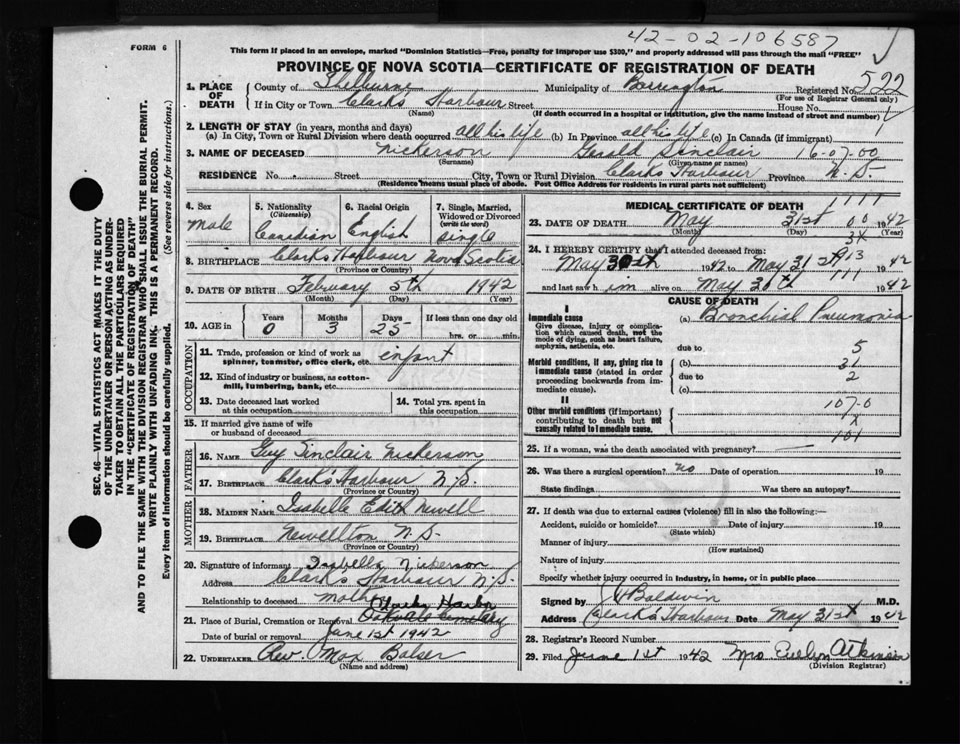 42-02-106587
FORM 6
This form if placed in an envelope, marked "Dominion Statistics—Free, penalty for improper use $300," and properly addressed will pass through the mail "FREE"
PROVINCE OF NOVA SCOTIA—CERTIFICATE OF REGISTRATION OF DEATH
SEC. 46—VITAL STATISTICS ACT MAKES IT THE DUTY
OF THE UNDERTAKER OR PERSON ACTING AS UNDER-
TAKER TO OBTAIN ALL THE PARTICULARS REQUIRED
IN THE "CERTIFICATE OF REGISTRATION OF DEATH"
AND TO FILE THE SAME WITH THE DIVISION REGISTRAR WHO SHALL ISSUE THE BURIAL PERMIT.
WRITE PLAINLY WITH UNFADING INK. THIS IS A PERMANENT RECORD.
Every item of Information should be carefully supplied. (See reverse side for instructions.)
1. PLACE OF DEATH County of Shelburne Municipality of Barrington Registered No. 522
(For use of Registrar General only)
If in City or Town Clark's Harbour Street House No.
(Name) (If death occurred in a hospital or institution, give the name instead of street and number)
2. LENGTH OF STAY (in years, months and days)
(a) In City, Town or Rural Division where death occurred all his life (b) In Province all his life (c) In Canada (if immigrant)
3. NAME OF DECEASED Nickerson Gerald Sinclair 16-07-00
(Surname) (Given name or names)
RESIDENCE No. Street City, Town or Rural Division Clark's Harbour Province N.S.
(Residence means usual place of abode. Post Office Address for residents in rural parts not sufficient)
4. Sex Male
5. Nationality (Citizenship) Canadian
6. Racial Origin English
7. Single, Married, Widowed or Divorced (write the word) Single
8. BIRTHPLACE Clark's Harbour Nova Scotia
(Province or Country)
9. DATE OF BIRTH February 5th 1942
(Month) (Day) (Year)
10. AGE in Years 0 Months 3 Days 25 If less than one day old hrs. or min.
OCCUPATION
11. Trade, profession or kind of work as spinner, teamster, office clerk, etc. infant
12. Kind of industry or business, as cotton-mill, lumbering, bank, etc.
13. Date deceased last worked at this occupation
14. Total yrs. spent in this occupation
15. If married give name of wife or husband of deceased
FATHER
16. NAME Guy Sinclair Nickerson
17. BIRTHPLACE Clark's Harbour N.S.
(Province or Country)
MOTHER
18. MAIDEN NAME Isabelle Edith Newell
19. BIRTHPLACE Newellton N.S.
(Province or Country)
20. Signature of informant Isabelle Nickerson
Address Clark's Harbour N.S.
Relationship to deceased mother
21. Place of Burial, Cremation or Removal Clarks Harbor Cemetery
Date of burial or removal June 1st 1942
22. UNDERTAKER Rev. Max Balser
(Name and address)
MEDICAL CERTIFICATE OF DEATH
1111
23. DATE OF DEATH May 31st 00 1942
(Month) (Day) (Year)
3X
24. I HEREBY CERTIFY that I attended deceased from:
May 30th 1942 to May 31st 1942
111
and last saw him alive on May 30th 1942
CAUSE OF DEATH
I
Immediate cause
Give disease, injury or complication which caused death, not the mode of dying, such as heart failure, asphyxia, asthenia, etc.
(a) Bronchial Pneumonia
due to 5
Morbid conditions, if any, giving rise to immediate cause (stated in order proceeding backwards from immediate cause).
(b) 31
due to 2
(c)
II
Other morbid conditions (if important) contributing to death but not causally related to immediate cause.
107-0
X
101
25. If a woman, was the death associated with pregnancy?
26. Was there a surgical operation? no Date of operation 19
State findings Was there an autopsy?
27. If death was due to external causes (violence) fill in also the following:—
Accident, suicide or homicide? Date of injury 19
(State which)
Manner of injury
(How sustained)
Nature of injury
Specify whether injury occurred in industry, in home, or in public place
Signed by Baldwin M.D.
Address Clark's Harbour Date May 31st 1942
28. Registrar's Record Number
29. Filed June 1st 1942 Mrs Evelyn Atkinson
(Division Registrar)